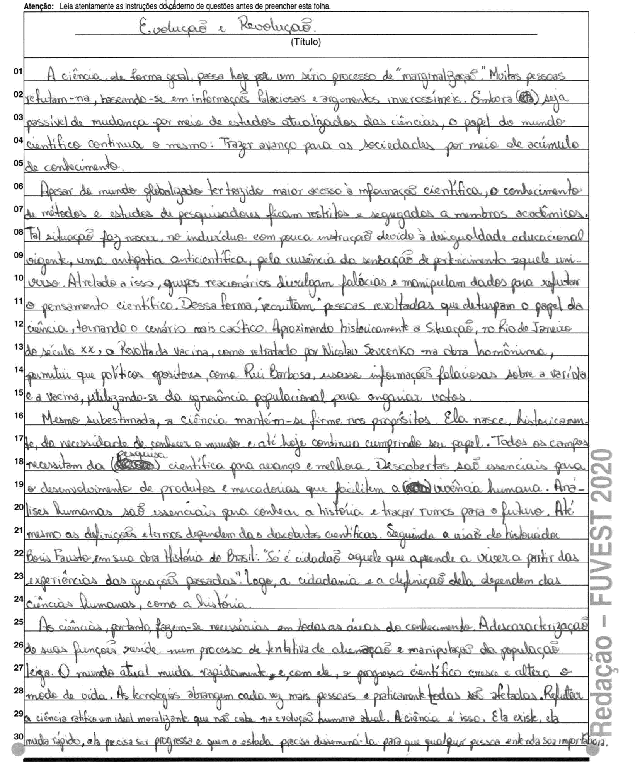 Atenção: Leia atentamente as instruções do caderno de questões antes de preencher esta folha.
Evolução e Revolução.
(Título)
01 A ciência, de forma geral, passa hoje por um sério processo de "marginalização". Muitas pessoas
02 refutam-na, baseando-se em informações falaciosas e argumentos inverossímeis. Embora seja
03 passível de mudança por meio de estudos atualizados das ciências, o papel do mundo
04 científico continua o mesmo: Trazer avanço para as sociedades por meio de acúmulo
05 de conhecimento.
06 Apesar do mundo globalizado ter trazido maior acesso à informação científica, o conhecimento
07 de métodos e estudos de pesquisadores ficam restritos e segregados a membros acadêmicos.
08 Tal situação faz nascer, no indivíduo com pouca instrução devido à desigualdade educacional
09 vigente, uma antipatia anticientífica, pela ausência da sensação de pertencimento aquele uni-
10 verso. Atrelado a isso, grupos reacionários divulgam falácias e manipulam dados para refutar
11 o pensamento científico. Dessa forma, "recrutam" pessoas revoltadas que deturpam o papel da
12 ciência, tornando o cenário mais caótico. Aproximando historicamente a situação, no Rio de Janeiro
13 do século XX, a Revolta da vacina, como retratado por Nicolau Sevcenko na obra homônima,
14 permitiu que políticos opositores, como Rui Barbosa, usasse informações falaciosas sobre a varíola
15 e a vacina, utilizando-se da ignorância populacional para angariar votos.
16 Mesmo subestimada, a ciência mantém-se firme nos propósitos. Ela nasce, historicamen-
17 te, da necessidade de conhecer o mundo e até hoje continua cumprindo seu papel. Todos os campos
18 necessitam da pesquisa científica para avanço e melhora. Descobertas são essenciais para
19 o desenvolvimento de produtos e mercadorias que facilitem a vivência humana. Aná-
20 lises humanas são essenciais para conhecer a história e traçar rumos para o futuro. Até
21 mesmo as definições e termos dependem das descobertas científicas. Segundo a visão do historiador
22 Boris Fausto em sua obra História do Brasil: "Só é cidadão aquele que aprende a viver a partir das
23 experiências das gerações passadas". Logo, a cidadania e a definição dela dependem das
24 ciências humanas, como a história.
25 As ciências, portanto, fazem-se necessárias em todas as áreas do conhecimento. A descaracterização
26 de suas funções reside num processo de tentativa de alienação e manipulação da população
27 leiga. O mundo atual muda rapidamente e, com ele, o progresso científico cresce e altera o
28 modo de vida. As tecnologias abrangem cada vez mais pessoas e praticamente todas são afetadas. Refutar
29 a ciência ratifica um ideal moralizante que não cabe na evolução humana atual. A ciência é isso. Ela existe, ela
30 muda rápido, ela precisa ser progressa e quem a estuda precisa disseminá-la para que qualquer pessoa entenda sua importância.
Redação – FUVEST 2020